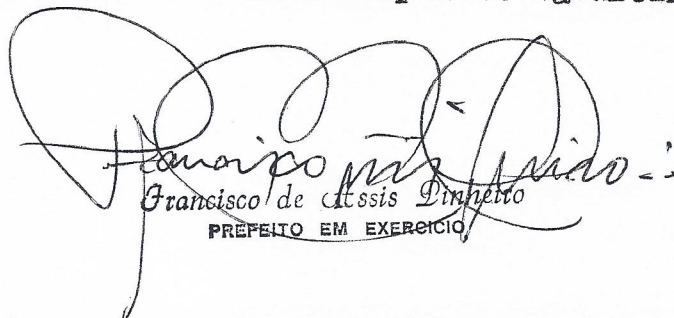 Francisco de Assis Pinheiro
PREFEITO EM EXERCICIO